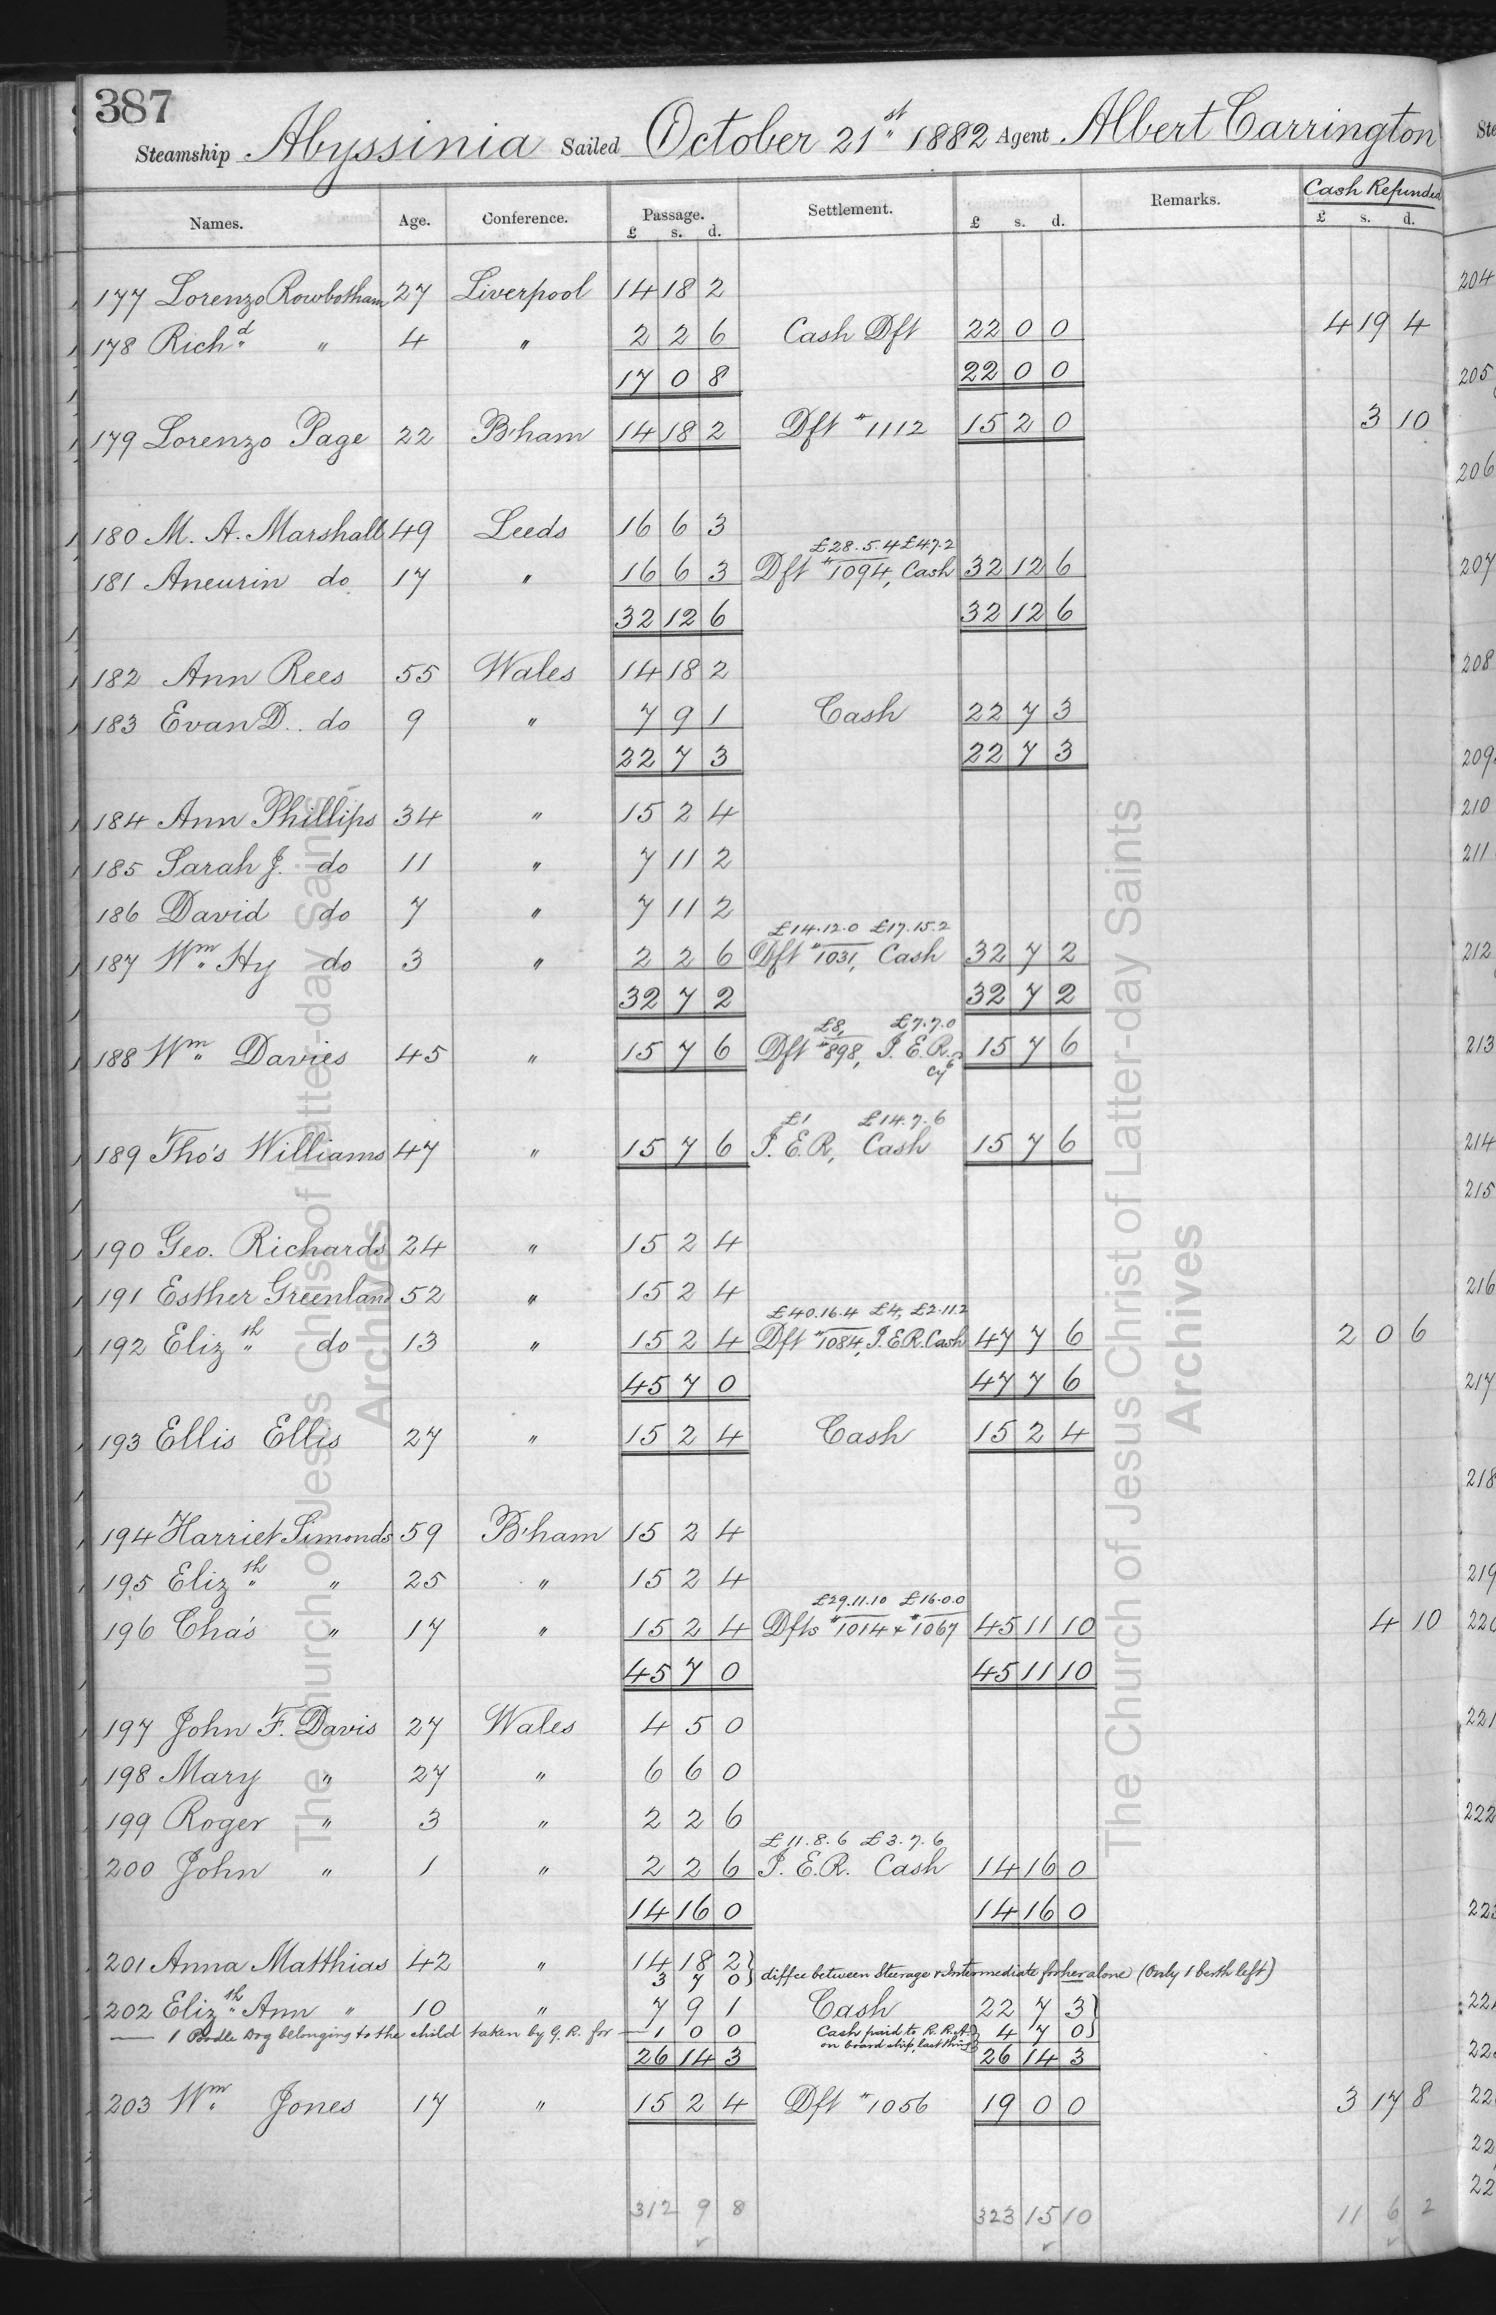 387
Steamship Abyssinia Sailed October 21st 1882 Agent Albert Carrington
Names. Age. Conference. Passage. £ s. d. Settlement. £ s. d. Remarks. Cash Refunded £ s. d.
177 Lorenzo Rowbotham 27 Liverpool 14 18 2
178 Richd " 4 " 2 2 6 Cash Dft 22 0 0 4 19 4
17 0 8 22 0 0
179 Lorenzo Page 22 B'ham 14 18 2 Dft #1112 15 2 0 3 10
180 M. A. Marshall 49 Leeds 16 6 3
£28.5.4 £4.7.2
181 Aneurin do 17 " 16 6 3 Dft #1094, Cash 32 12 6
32 12 6 32 12 6
182 Ann Rees 55 Wales 14 18 2
183 Evan D. do 9 " 7 9 1 Cash 22 7 3
22 7 3 22 7 3
184 Ann Phillips 34 " 15 2 4
185 Sarah J. do 11 " 7 11 2
186 David do 7 " 7 11 2
£14.12.0 £17.15.2
187 Wm Hy do 3 " 2 2 6 Dft #1031, Cash 32 7 2
32 7 2 32 7 2
£8, £7.7.0
188 Wm Davies 45 " 15 7 6 Dft #898, I.E.R. 15 7 6
189 Tho's Williams 47 " 15 7 6 I.E.R, Cash 15 7 6
£1 £14.7.6
190 Geo. Richards 24 " 15 2 4
191 Esther Greenland 52 " 15 2 4
£40.16.4 £4, £2.11.2
192 Elizth do 13 " 15 2 4 Dft #1084, I.E.R. Cash 47 7 6 2 0 6
45 7 0 47 7 6
193 Ellis Ellis 27 " 15 2 4 Cash 15 2 4
194 Harriet Simonds 59 B'ham 15 2 4
195 Elizth " 25 " 15 2 4
£29.11.10 £16.0.0
196 Cha's " 17 " 15 2 4 Dfts #1014 & #1067 45 11 10 4 10
45 7 0 45 11 10
197 John F. Davis 27 Wales 4 5 0
198 Mary " 27 " 6 6 0
199 Roger " 3 " 2 2 6
£11.8.6 £3.7.6
200 John " 1 " 2 2 6 I.E.R. Cash 14 16 0
14 16 0 14 16 0
201 Anna Matthias 42 " 14 18 2
3 7 0 diffce between Steerage & Intermediate for her alone (Only 1 berth left)
202 Elizth Ann " 10 " 7 9 1 Cash 22 7 3
— 1 Poodle Dog belonging to the child taken by G. R. for — 1 0 0 Cash paid to R. R. A. 4 7 0
on board ship, last thing
26 14 3 26 14 3
203 Wm Jones 17 " 15 2 4 Dft #1056 19 0 0 3 17 8
312 9 8 323 15 10 11 6 2
204
205
206
207
208
209
210
211
212
213
214
215
216
217
218
219
220
221
222
The Church of Jesus Christ of Latter-day Saints
Archives
The Church of Jesus Christ of Latter-day Saints
Archives